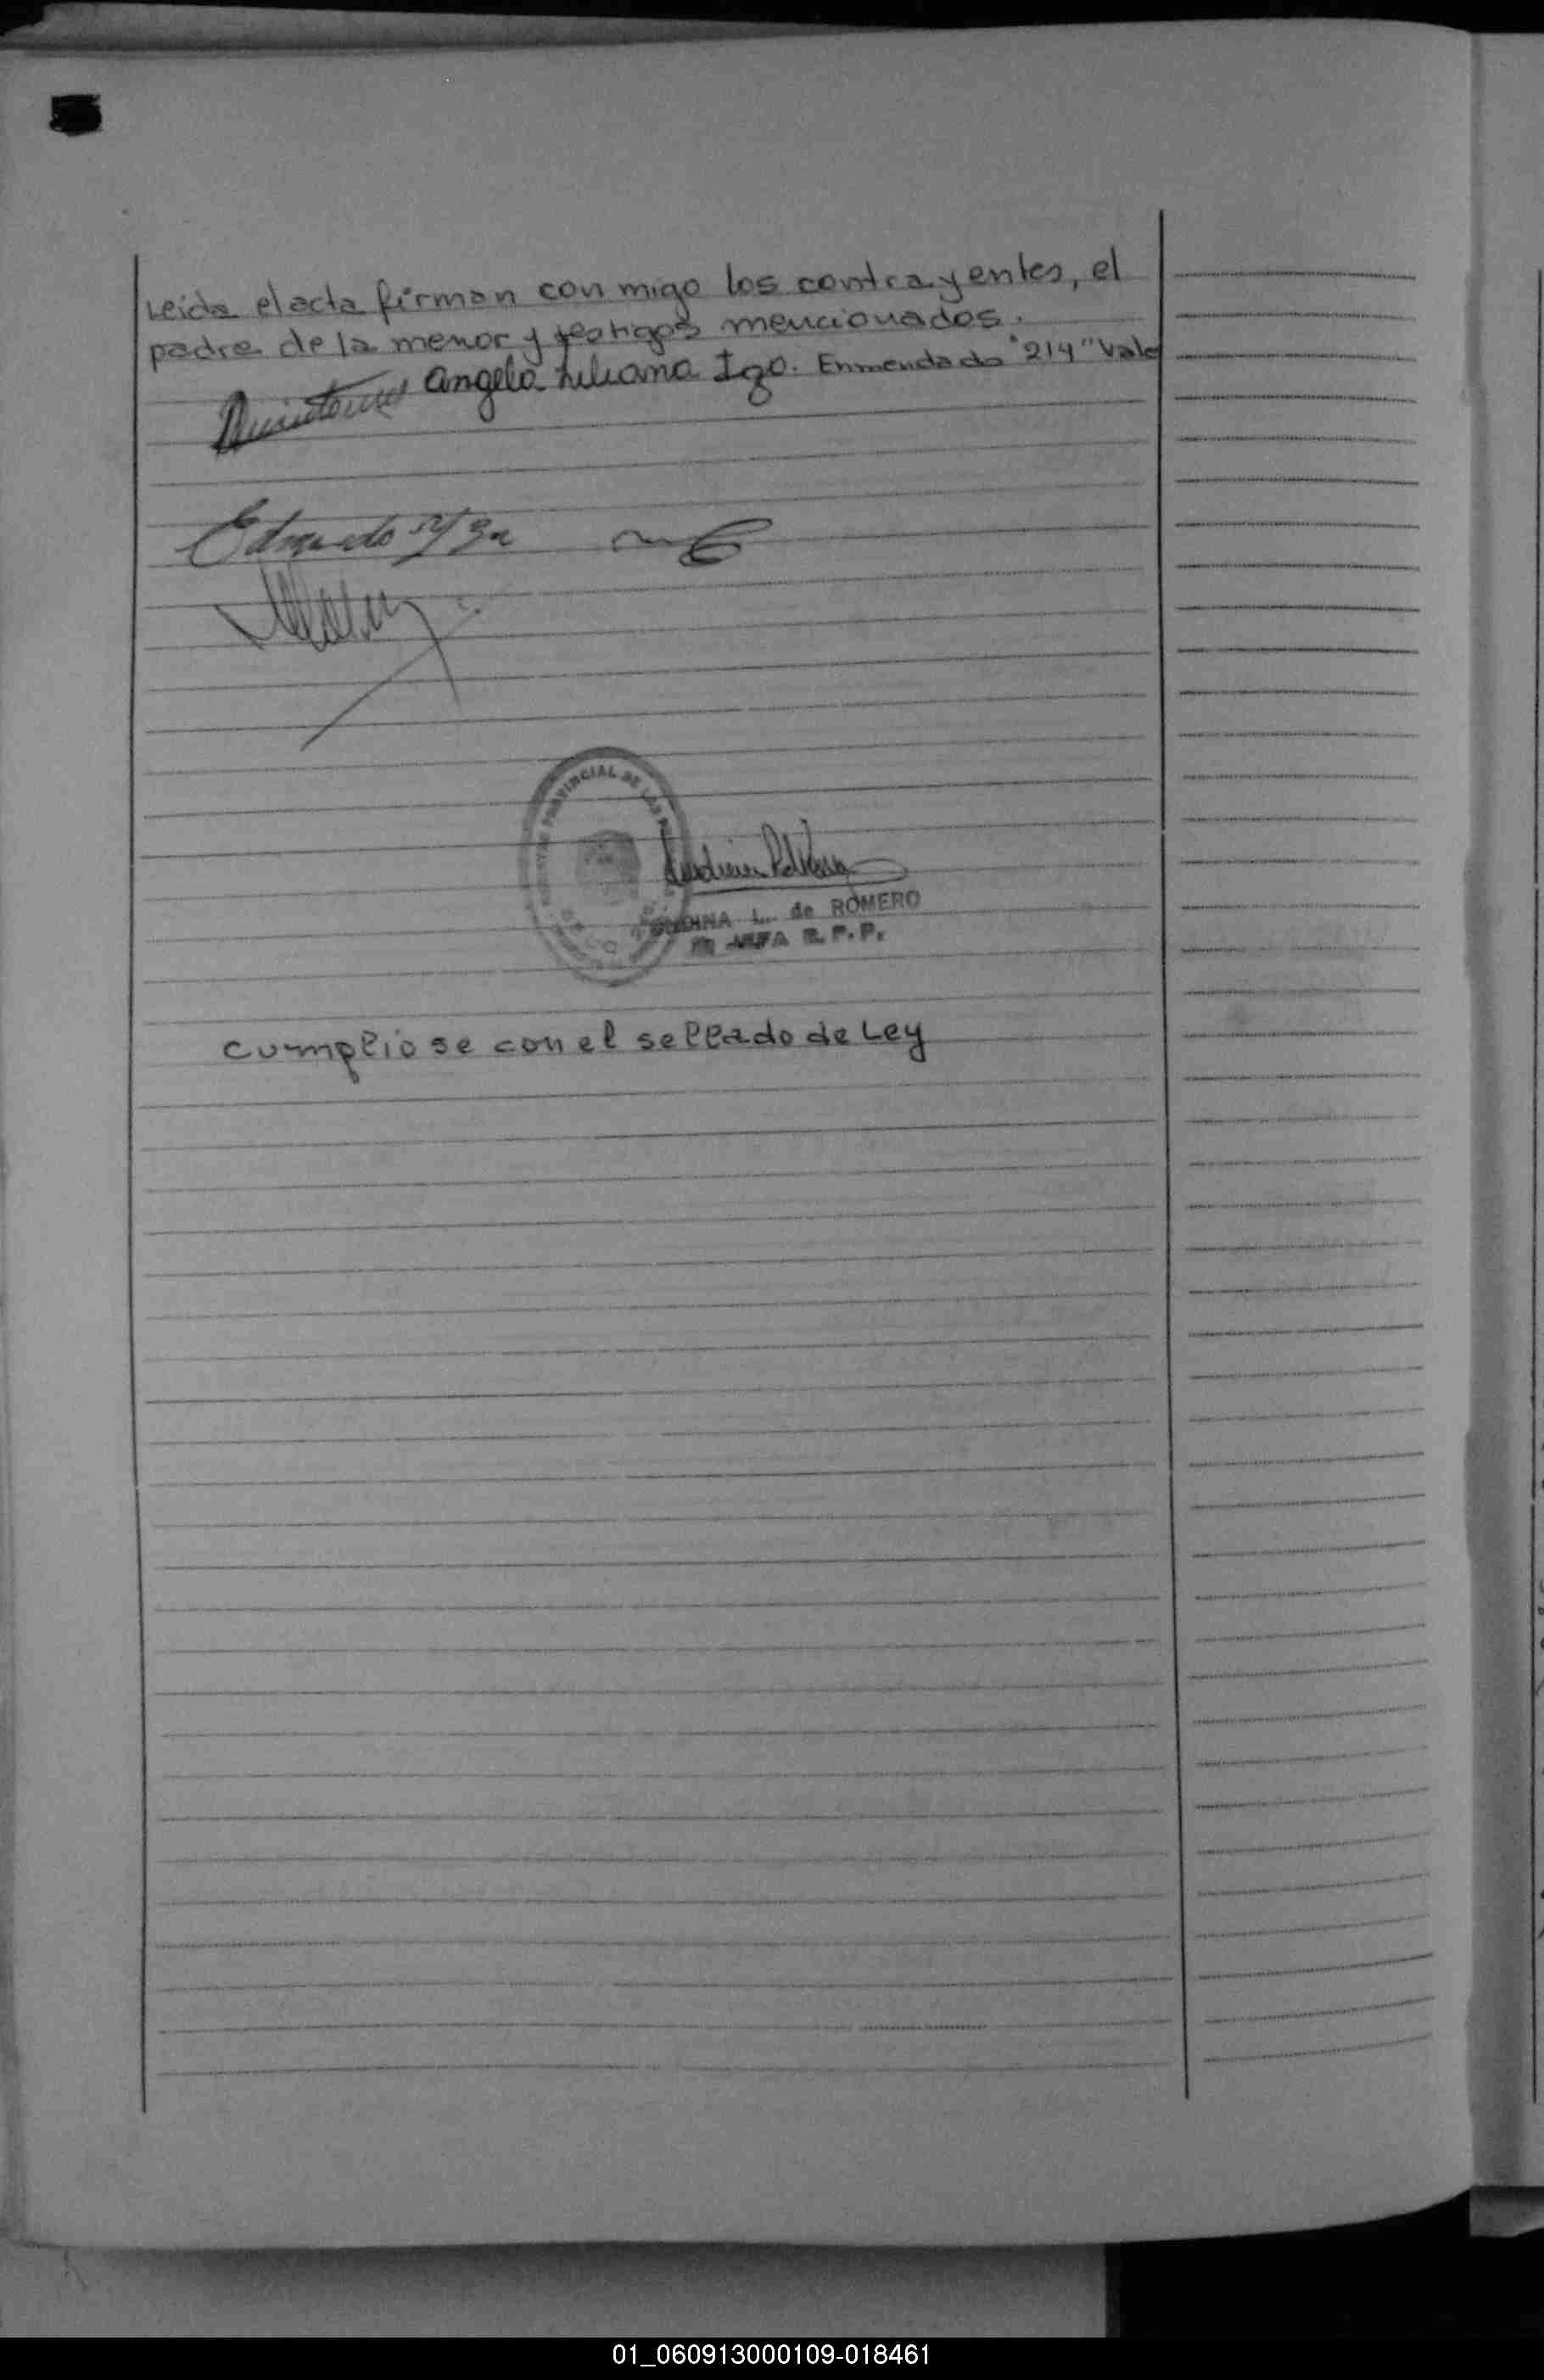 Leida el acta firman con migo los contrayentes, el
padre de la menor y testigos mencionados.
Angela Liliana Izo. Enmendado "214" Vale
Eduardo
PROVINCIAL DE LAS P
L. de ROMERO
JEFA R. P. P.
cumpliose con el sellado de Ley
01_060913000109-018461